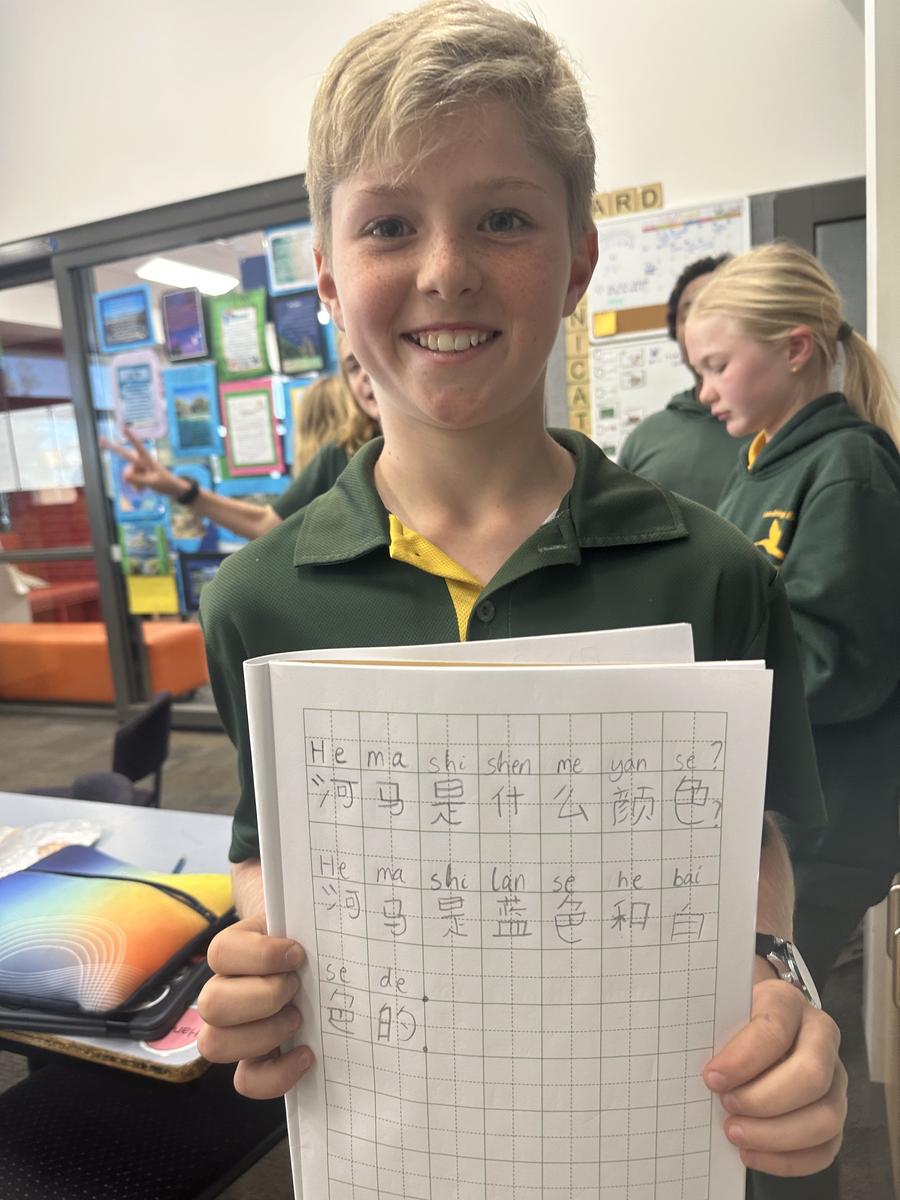 ARD
ICAT
He ma shi shen me yan se ?
河 马 是 什 么 颜 色 ?
He ma shi lan se he bai
河 马 是 蓝 色 和 白
se de .
色 的 .